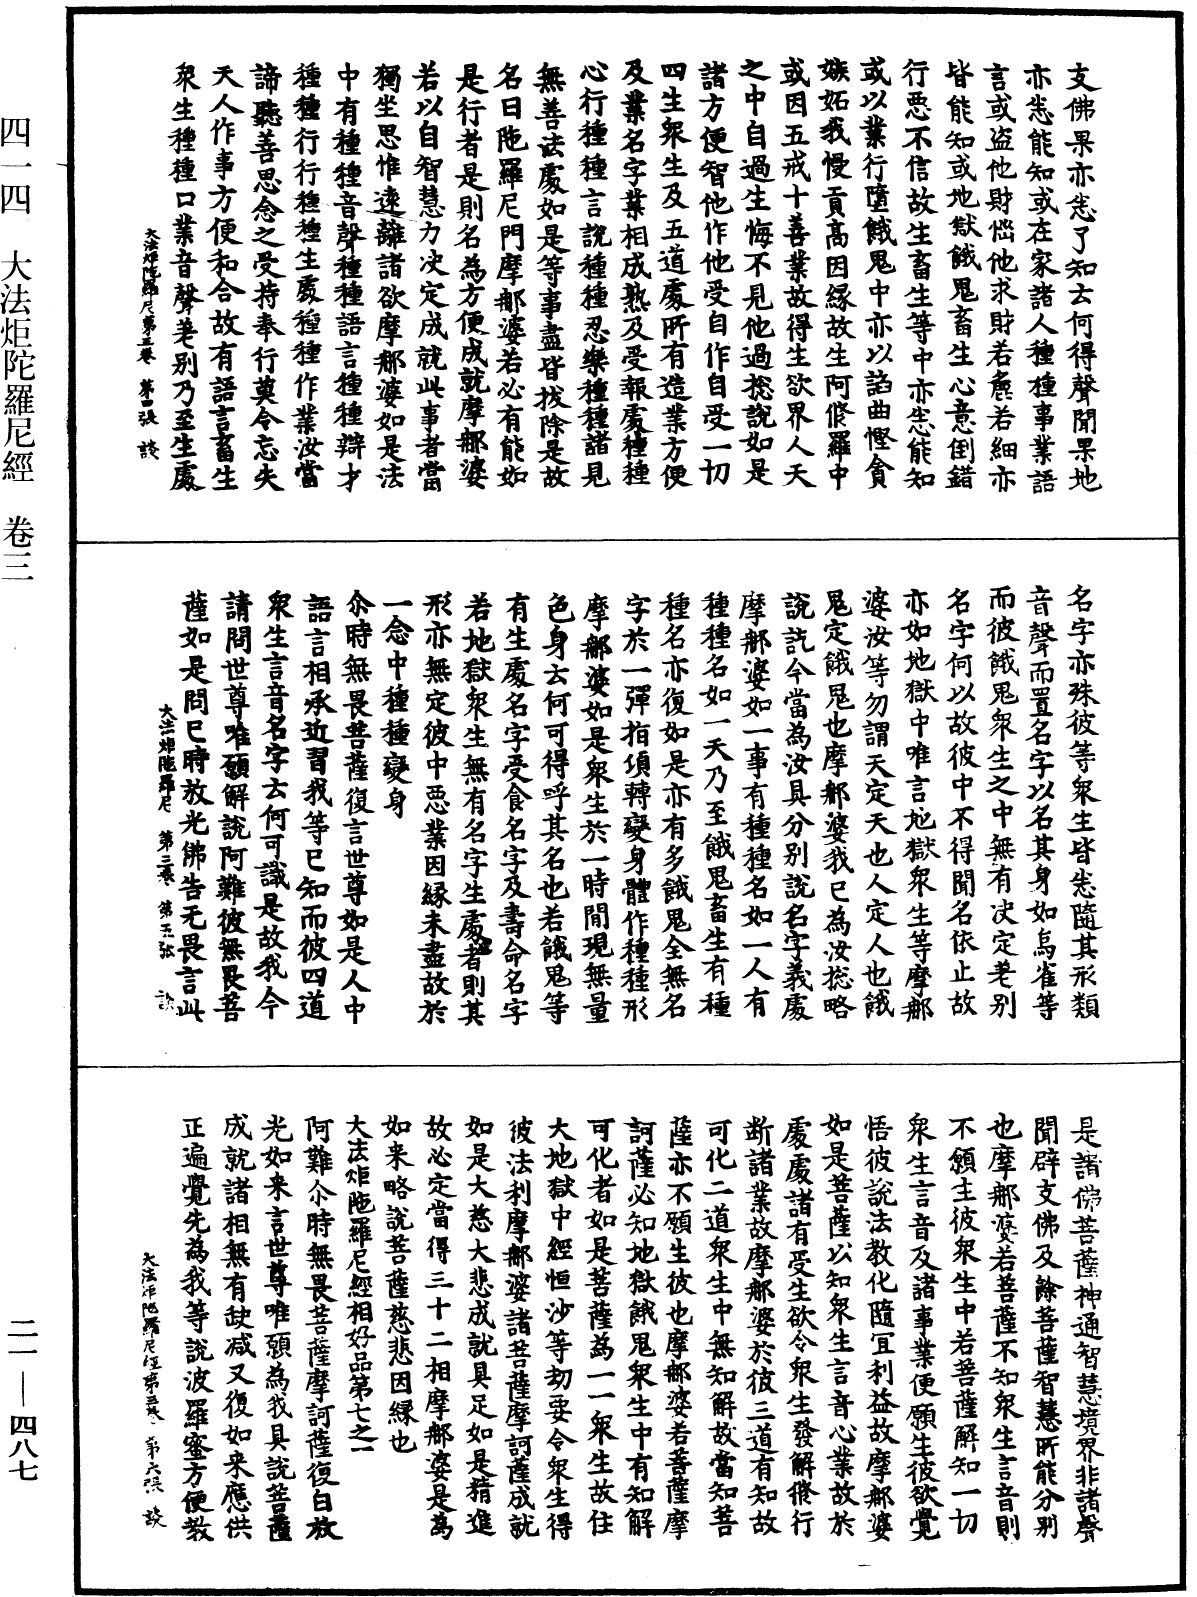 支佛果亦悉了知去何得聲聞果地
亦悉能知或在家諸人種種事業語
言或盗他財惱他求財若麁若細亦
皆能知或地獄餓鬼畜生心意倒錯
行惡不信故生畜生等中亦悉能知
或以業行墮餓鬼中亦以諂曲慳貪
嫉妬我慢貢高因縁故生阿脩羅中
或因五戒十善業故得生欲界人天
之中自過生悔不見他過惣說如是
諸方便智他作他受自作自受一切
四生衆生及五道處所有造業方便
及業名字業相成熟及受報處種種
心行種種言說種種忍樂種種諸見
無善法處如是等事盡皆拔除是故
名曰陁羅尼門摩那婆若必有能如
是行者是則名為方便成就摩那婆
若以自智慧力決定成就此事者當
獨坐思惟遠離諸欲摩那婆如是法
中有種種音聲種種語言種種辯才
種種行行種種生處種種作業汝當
諦聽善思念之受持奉行莫令忘失
天人作事方便和合故有語言畜生
衆生種種口業音聲差別乃至生處
大法炬陁羅尼第三卷 第四張 談
名字亦殊彼等衆生皆悉隨其形類
音聲而置名字以名其身如烏雀等
而彼餓鬼衆生之中無有決定差別
名字何以故彼中不得聞名依止故
亦如地獄中唯言地獄衆生等摩那
婆汝等勿謂天定天也人定人也餓
鬼定餓鬼也摩那婆我已為汝惣略
說訖今當為汝具分別說名字義處
摩那婆如一事有種種名如一人有
種種名如一天乃至餓鬼畜生有種
種名亦復如是亦有多餓鬼全無名
字於一彈指須轉變身體作種種形
摩那婆如是衆生於一時間現無量
色身去何可得呼其名也若餓鬼等
有生處名字受食名字及壽命名字
若地獄衆生無有名字生處者則其
形亦無定彼中惡業因縁未盡故於
一念中種種變身
尒時無畏菩薩復言世尊如是人中
語言相承近習我等已知而彼四道
衆生言音名字去何可識是故我今
請問世尊唯願解說阿難彼無畏菩
薩如是問已時放光佛告无畏言此
大法炬陁羅尼 第三卷 第五張 談
是諸佛菩薩神通智慧境界非諸聲
聞辟支佛及餘菩薩智慧所能分別
也摩那婆若菩薩不知衆生言音則
不願生彼衆生中若菩薩解知一切
衆生言音及諸事業便願生彼欲覺
悟彼說法教化隨冝利益故摩那婆
如是菩薩以知衆生言音心業故於
處處諸有受生欲令衆生發解脩行
断諸業故摩那婆於彼三道有知故
可化二道衆生中無知解故當知菩
薩亦不願生彼也摩那婆若菩薩摩
訶薩必知地獄餓鬼衆生中有知解
可化者如是菩薩為一一衆生故住
大地獄中經恒沙等劫要令衆生得
彼法利摩那婆諸菩薩摩訶薩成就
如是大慈大悲成就具足如是精進
故必定當得三十二相摩那婆是為
如来略說菩薩慈悲因縁也
大法炬陁羅尼經相好品第七之一
阿難尒時無畏菩薩摩訶薩復白放
光如来言世尊唯願為我具說菩薩
成就諸相無有缺減又復如来應供
正遍覺先為我等說波羅蜜方便教
大法炬陁羅尼經第三卷 第六張 談
四一四 大法炬陀羅尼經 卷三
二一—四八七